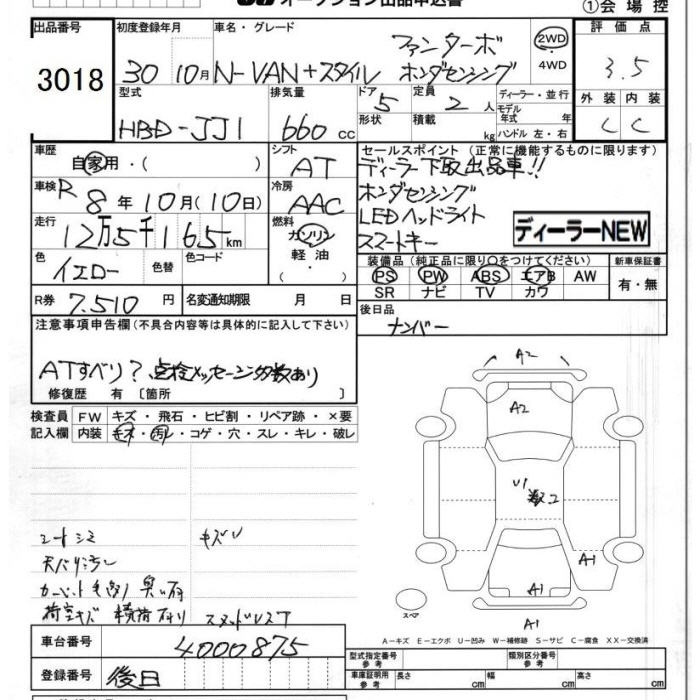 オークション出品申込書
①会場控
出品番号 初度登録年月 車名・グレード 評価点
3018 30 10月 N-VAN+スタイル ファンターボ ホンダセンシング 2WD 4WD 3.5
型式 排気量 ドア 定員 ディーラー・並行 外装 内装
HBD-JJ1 660cc 5 2人 モデル年式 年 C C
形状 積載 kg ハンドル 左・右
車歴 シフト セールスポイント (正常に機能するものに限ります)
自家用・( ) AT ディーラー下取出品車!!
車検 冷房 ホンダセンシング
R8年10月(10日) AAC LEDヘッドライト
走行 燃料 スマートキー
12万5千165km ガソリン 軽油 ・( ) ディーラーNEW
色 色替 色コード 装備品(純正品に限り○をつけてください) 新車保証書
イエロー PS PW ABS エアB AW 有・無
SR ナビ TV カワ
R券 7,510円 名変通知期限 月 日 後日品
ナンバー
注意事項申告欄(不具合内容等は具体的に記入して下さい)
ATすべり? 点検メッセージ多数あり
修復歴 有 〔箇所 〕
検査員 FW キズ・飛石・ヒビ割・リペア跡・×要
記入欄 内装 キズ・汚レ・コゲ・穴・スレ・キレ・破レ
シートシミ キズU
天バリ汚レ
荷室キズ
A2
A2
U1
A1
A1
A1
スペア
A-キズ E-エクボ U-凹み W-補修跡 S-サビ C-腐食 XX-交換済
車台番号 4000875
型式指定番号 参考 類別区分番号 参考
登録番号 後日
車庫証明用 参考 長さ cm 幅 cm 高さ cm